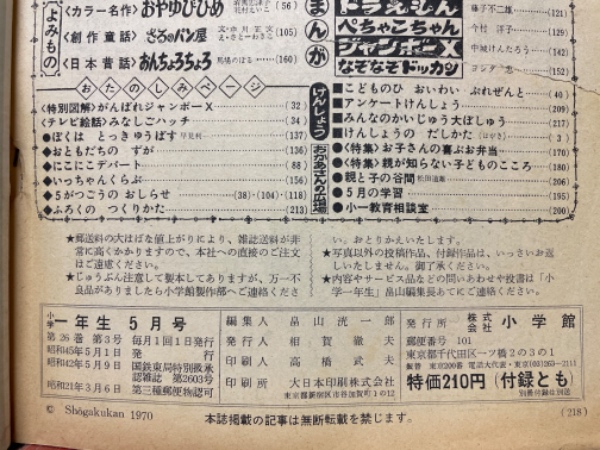 よみもの
〈カラー名作〉おやゆびひめ (56)
〈創作童話〉さるのパン屋 (105)
〈日本昔話〉あんちょろちょろ 馬場のぼる (160)
まんが
ドラえもん 藤子不二雄 (121)
ぺちゃこちゃん 今村洋子 (129)
ジャンボーX 中城けんたろう (142)
なぞなぞドッカン (152)
おたのしみページ
〈特別図解〉がんばれジャンボーX (32)
〈テレビ絵話〉みなしごハッチ (34)
●ぼくは とっきゅうばす (137)
◆おともだちの ずが (136)
◆にこにこデパート (88)
◆いっちゃんくらぶ (156)
◆5がつごうの おしらせ (38)・(104)・(118)
◆ふろくの つくりかた (213)
けんしょう
■こどものひ おいわい ぷれぜんと (40)
■アンケートけんしょう (209)
■みんなのかいじゅう大ぼしゅう (217)
■けんしょうの だしかた (はがき) (3)
おかあさんの広場
●〈特集〉お子さんの喜ぶお弁当 (176)
●〈特集〉親が知らない子どものこころ (180)
●親と子の谷間 松田道雄 (206)
●5月の学習 (195)
●小一教育相談室 (200)
★郵送料の大はばな値上がりにより、雑誌送料が非
常に高くかかりますので、本社への直接のご注文
はご遠慮ください。
★じゅうぶん注意して製本してありますが、万一不
良品がありましたら小学館製作部へご連絡くださ
い。おとりかえいたします。
★写真以外の投稿作品、付録作品は、いっさいお返
しいたしません。御了承ください。
★内容やサービス品などの問いあわせや投書は「小
学一年生」畠山編集長あてにご連絡ください。
小学一年生 5月号
第26巻 第3号 毎月1回1日発行
昭和45年5月1日 発行
昭和42年5月9日 国鉄東局特別扱承認雑誌 第2603号
昭和21年3月6日 第三種郵便物認可
編集人 畠山滉一郎
発行人 相賀徹夫
印刷人 高橋武夫
印刷所 大日本印刷株式会社
東京都新宿区市谷加賀町1の12
発行所 株式会社 小学館
郵便番号 101
東京都千代田区一ツ橋2の3の1
振替 東京200番 電話大代表・東京(03)263-2111
特価210円(付録とも)
別冊付録は別送
© Shōgakukan 1970
本誌掲載の記事は無断転載を禁じます。
(218)